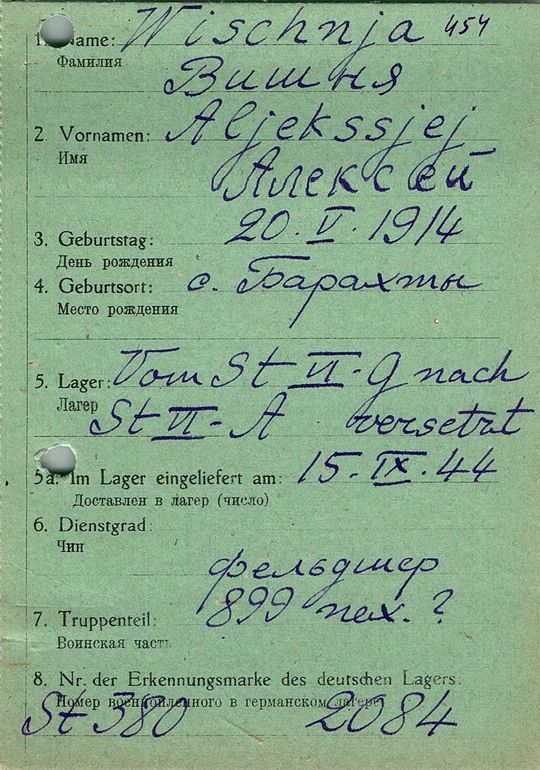 1. Name: Wischnja 454
Фамилия
Вишня
2 Vornamen: Aljekssjej
Имя
Алексей
3. Geburtstag: 20. V. 1914
День рождения
4. Geburtsort: с. Барахты
Место рождения
5. Lager: Vom St VI-G nach
Лагер
St VI-A versetzt
5a. Im Lager eingeliefert am: 15. IX. 44
Доставлен в лагер (число)
6. Dienstgrad:
Чин
фельдшер
7. Truppenteil: 899 пех. ?
Воинская часть
8. Nr. der Erkennungsmarke des deutschen Lagers:
Номер военнопленного в германском лагере
St 380 2084